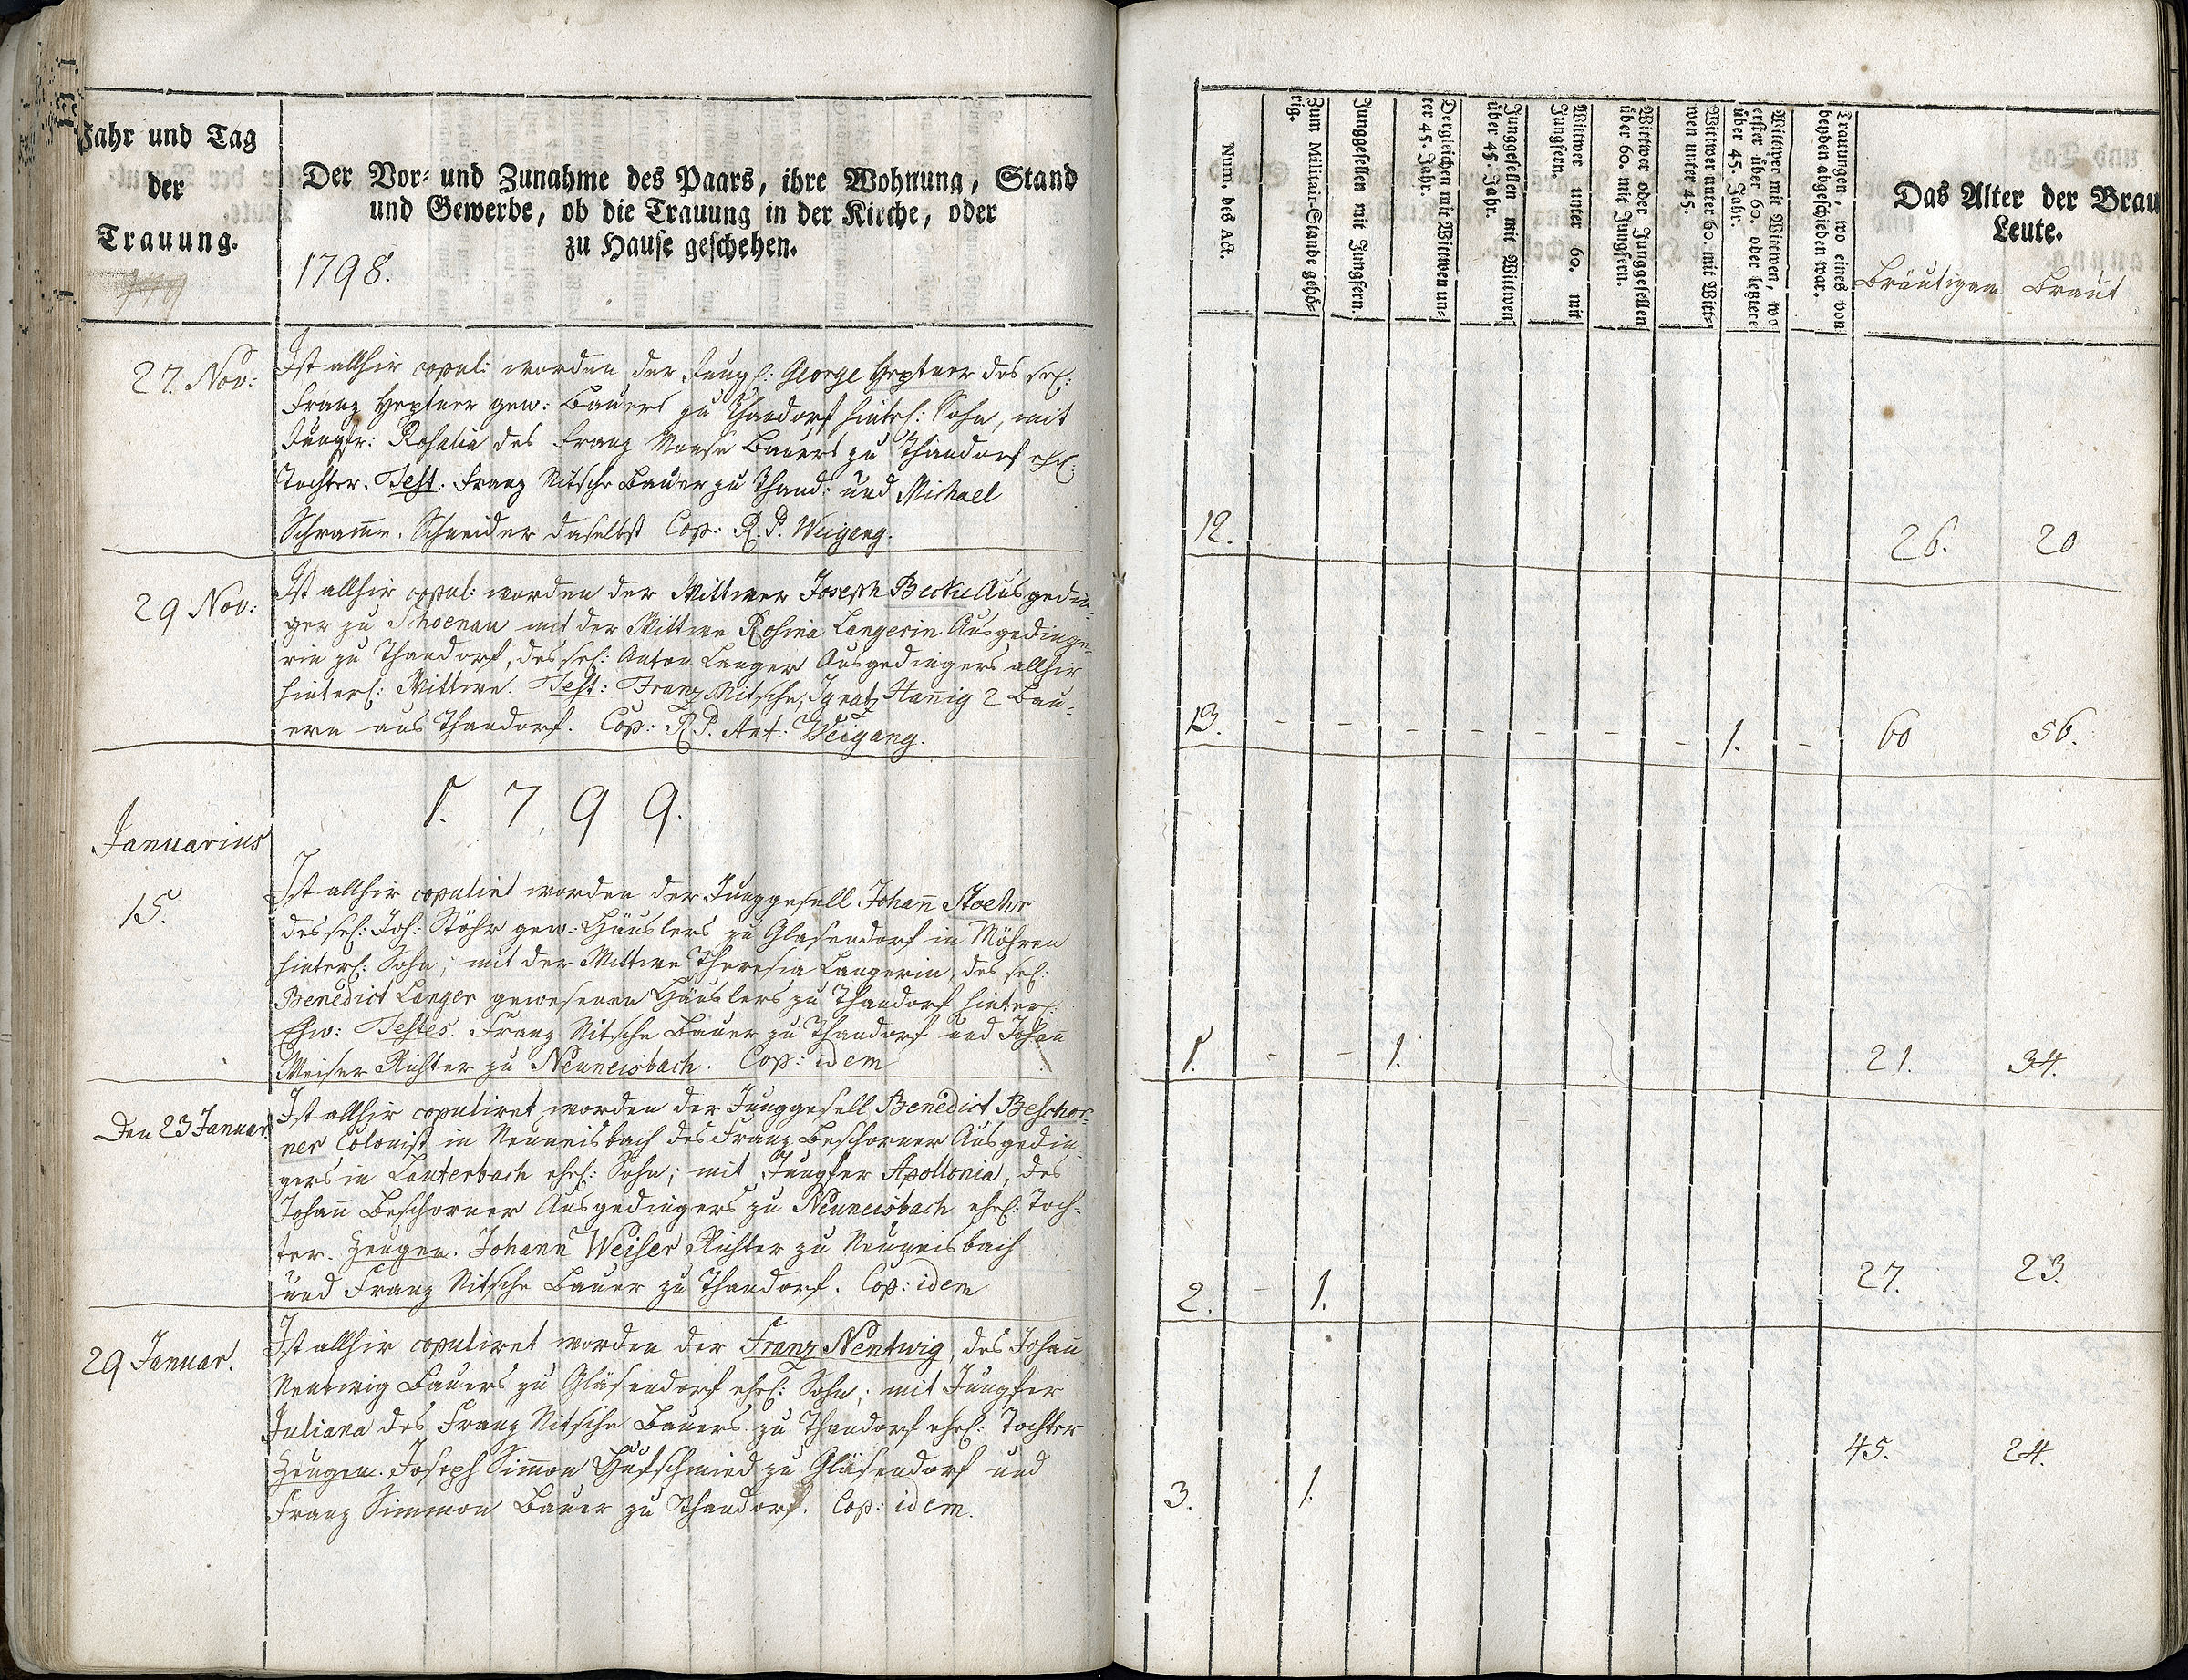 Jahr und Tag
der
Trauung.
Der Vor- und Zunahme des Paars, ihre Wohnung, Stand
und Gewerbe, ob die Trauung in der Kirche, oder
zu Hause geschehen.
1798.
27. Nov:
Ist allhir copul: worden der Jungg: George Heptner des sel:
Franz Heptner gew: Bauers zu Thandorf hinterl: Sohn, mit
Jungfr: Rosalia des Franz Bauers zu Thandorf ehel:
Tochter. Test. Franz Nitsche Bauer zu Thand: und Michael
Schram̅. Schneider daselbst Cop: R. P. Weigang.
29 Nov:
Ist allhir copul: worden der Wittwer Joseph Beck Ausgedin-
ger zu Schoenau mit der Wittwe Rosina Langerin Ausgedinge-
rin zu Thandorf, des sel: Anton Langer Ausgedingers allhir
hinterl: Wittwe. Test: Franz Nitsche, Ignatz Han̅ig 2 Bau-
ern aus Thandorf. Cop: R. P. Ant: Weigang.
1. 7. 9 9.
Januarius
15.
Ist allhir copulirt worden der Junggesell Johan̅ Stoehr
des sel: Jos: Stöhr gew: Häuslers zu Glasendorf in Möhren
hinterl: Sohn; mit der Wittwe Theresia Langerin, des sel:
Benedict Langer gewesenen Häuslers zu Thandorf hinterl:
Ehw: Testes. Franz Nitsche Bauer zu Thandorf und Johan̅
Weiser Richter zu Neuneisbach. Cop: idem
Den 23 Januar
Ist allhir copuliret worden der Junggesell Benedict Beschor-
ner Colonist in Neuneisbach des Franz Beschorner Ausgedin-
gers in Lauterbach ehel: Sohn; mit Jungfer Apollonia, des
Johan̅ Beschorner Ausgedingers zu Neuneisbach ehel: Toch-
ter. Zeugen. Johann Weiser Richter zu Neuneisbach
und Franz Nitsche Bauer zu Thandorf. Cop: idem
29 Januar.
Ist allhir copuliret worden der Franz Nentwig, des Johan̅
Nentwig Bauers zu Gläsendorf ehel: Sohn; mit Jungfer
Juliana des Franz Nitsche Bauers zu Thandorf ehel: Tochter
Zeugen. Joseph Sim̅on Hufschmied zu Gläsendorf und
Franz Simmon Bauer zu Thandorf. Cop: idem.
Num. des Act.
Zum Militair-Stande gehö-
rig.
Junggesellen mit Jungfern.
Dergleichen mit Wittwen un-
ter 45. Jahr.
Junggesellen mit Wittwen
über 45. Jahr.
Wittwer unter 60. mit
Jungfern.
Wittwer oder Junggesellen
über 60. mit Jungfern.
Wittwer unter 60. mit Witt-
wen unter 45.
Wittwer mit Wittwen, wo
erster über 60. oder letztere
über 45. Jahr.
Trauungen, wo eines von
beyden abgeschieden war.
Das Alter der Brau
Leute.
Bräutigam Braut
12. 26. 20
13. - - - - - - - 1. - 60 56.
1. - - 1. 21. 34.
2. - 1. 27. 23.
3. 1. 45. 24.